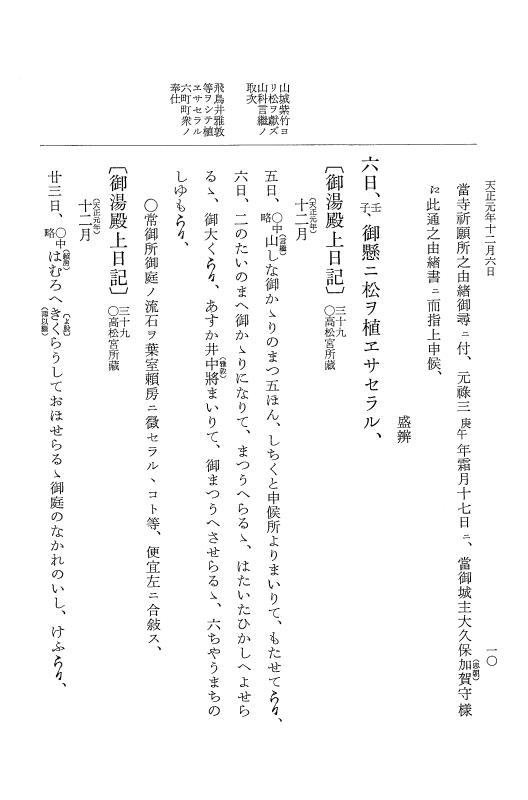 天正元年十二月六日
一〇
當寺祈願所之由緒御尋ニ付、元祿三庚午年霜月十七日ニ、當御城主大久保加賀守樣(忠朝)
江此通之由緒書ニ而指上申候、
盛辨
六日、壬子、御懸ニ松ヲ植ヱサセラル、
山城紫竹ヨリ松ヲ獻ズ
山科言繼ノ取次
〔御湯殿上日記〕三十九 〇高松宮所藏
(天正元年)
十二月
五日、〇中略 山しな(言繼)御かゝりのまつ五ほん、しちくと申候所よりまいりて、もたせてらう〳〵、
六日、二のたいのまへ御かゝりになりて、まつうへらるゝ、はたいたひかしへよせら
るゝ、御大くらう〳〵、あすか井中將(雅敦)まいりて、御まつうへさせらるゝ、六ちやうまちの
しゆもらう〳〵、
飛鳥井雅敦等ヲシテ植ヱサセラル
六町町衆ノ奉仕
〇常御所御庭ノ流石ヲ葉室賴房ニ徵セラルヽコト等、便宜左ニ合敍ス、
〔御湯殿上日記〕三十九 〇高松宮所藏
(天正元年)
十二月
廿三日、〇中略 はむろ(賴房)へきくらうしておほせらるゝ御庭のなかれのいし、けふらう〳〵、